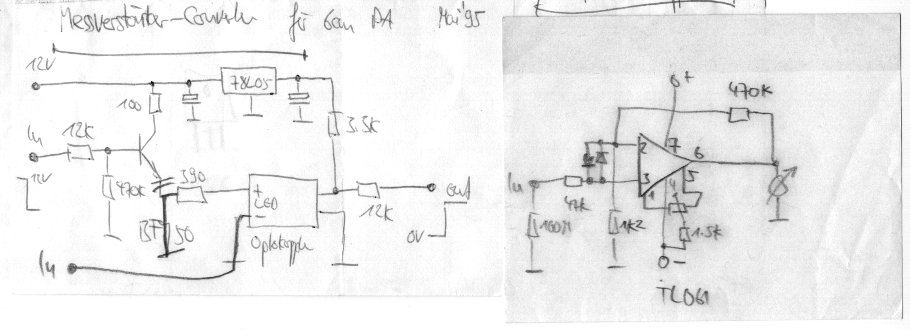 Messverstärker-Converter für 6cm PA Mai '95
12V
78L05
100
3.3K
In
12K
12V
470K
390
+
LED
-
12K
out
0V
BF 50
Optokoppler
In
+
470K
2
7
6
3
5
1
4
In
47K
100
1K2
1.5K
-
TL061